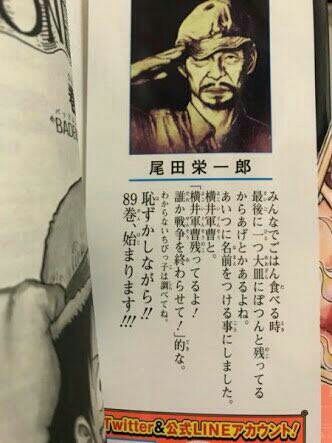 尾田栄一郎
みんなでごはん食べる時
最後に一つ大皿にぽつんと残ってる
からあげとかあるよね。
あいつに名前をつける事にしました。
横井軍曹と。
「横井軍曹残ってるよ!
誰か戦争を終わらせて!」的な。
わからないちびっ子は調べてね。
恥ずかしながら!!
89巻、始まります!!!
Twitter&公式LINEアカウント!